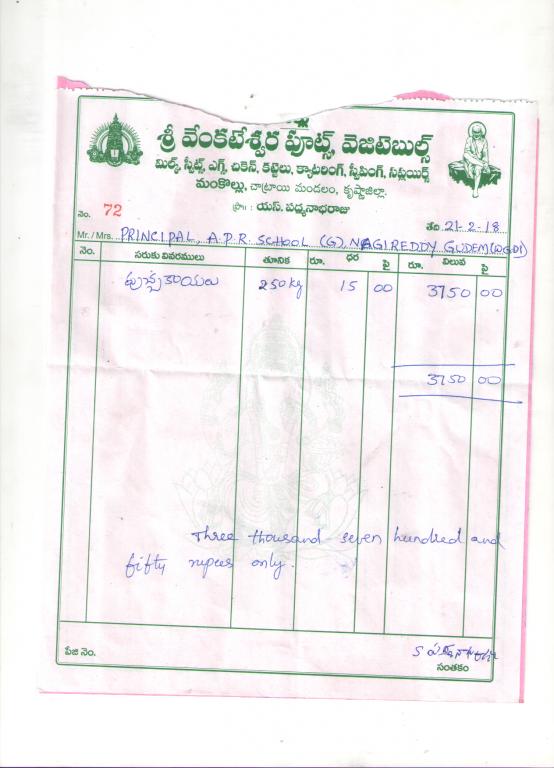 శ్రీ వేంకటేశ్వర ఫ్రూట్స్, వెజిటెబుల్స్
మిల్క్, స్వీట్స్, ఎగ్స్, చికెన్, కట్టెలు, క్యాటరింగ్, స్వీపింగ్, సప్లయర్స్
మంకొల్లు, చాట్రాయి మండలం, కృష్ణాజిల్లా.
ప్రొ॥ : యస్. పద్మనాభరాజు
నెం. 72
తేది 21-2-18
Mr. / Mrs. PRINCIPAL, A.P.R. SCHOOL (G), NAGIREDDY GUDEM (W.GDt)
నెం. సరుకు వివరములు తూనిక రూ. ధర పై రూ. విలువ పై
పుచ్చకాయలు 250 kg 15 00 3750 00
3750 00
Three thousand seven hundred and
fifty rupees only.
పేజి నెం.
సంతకం